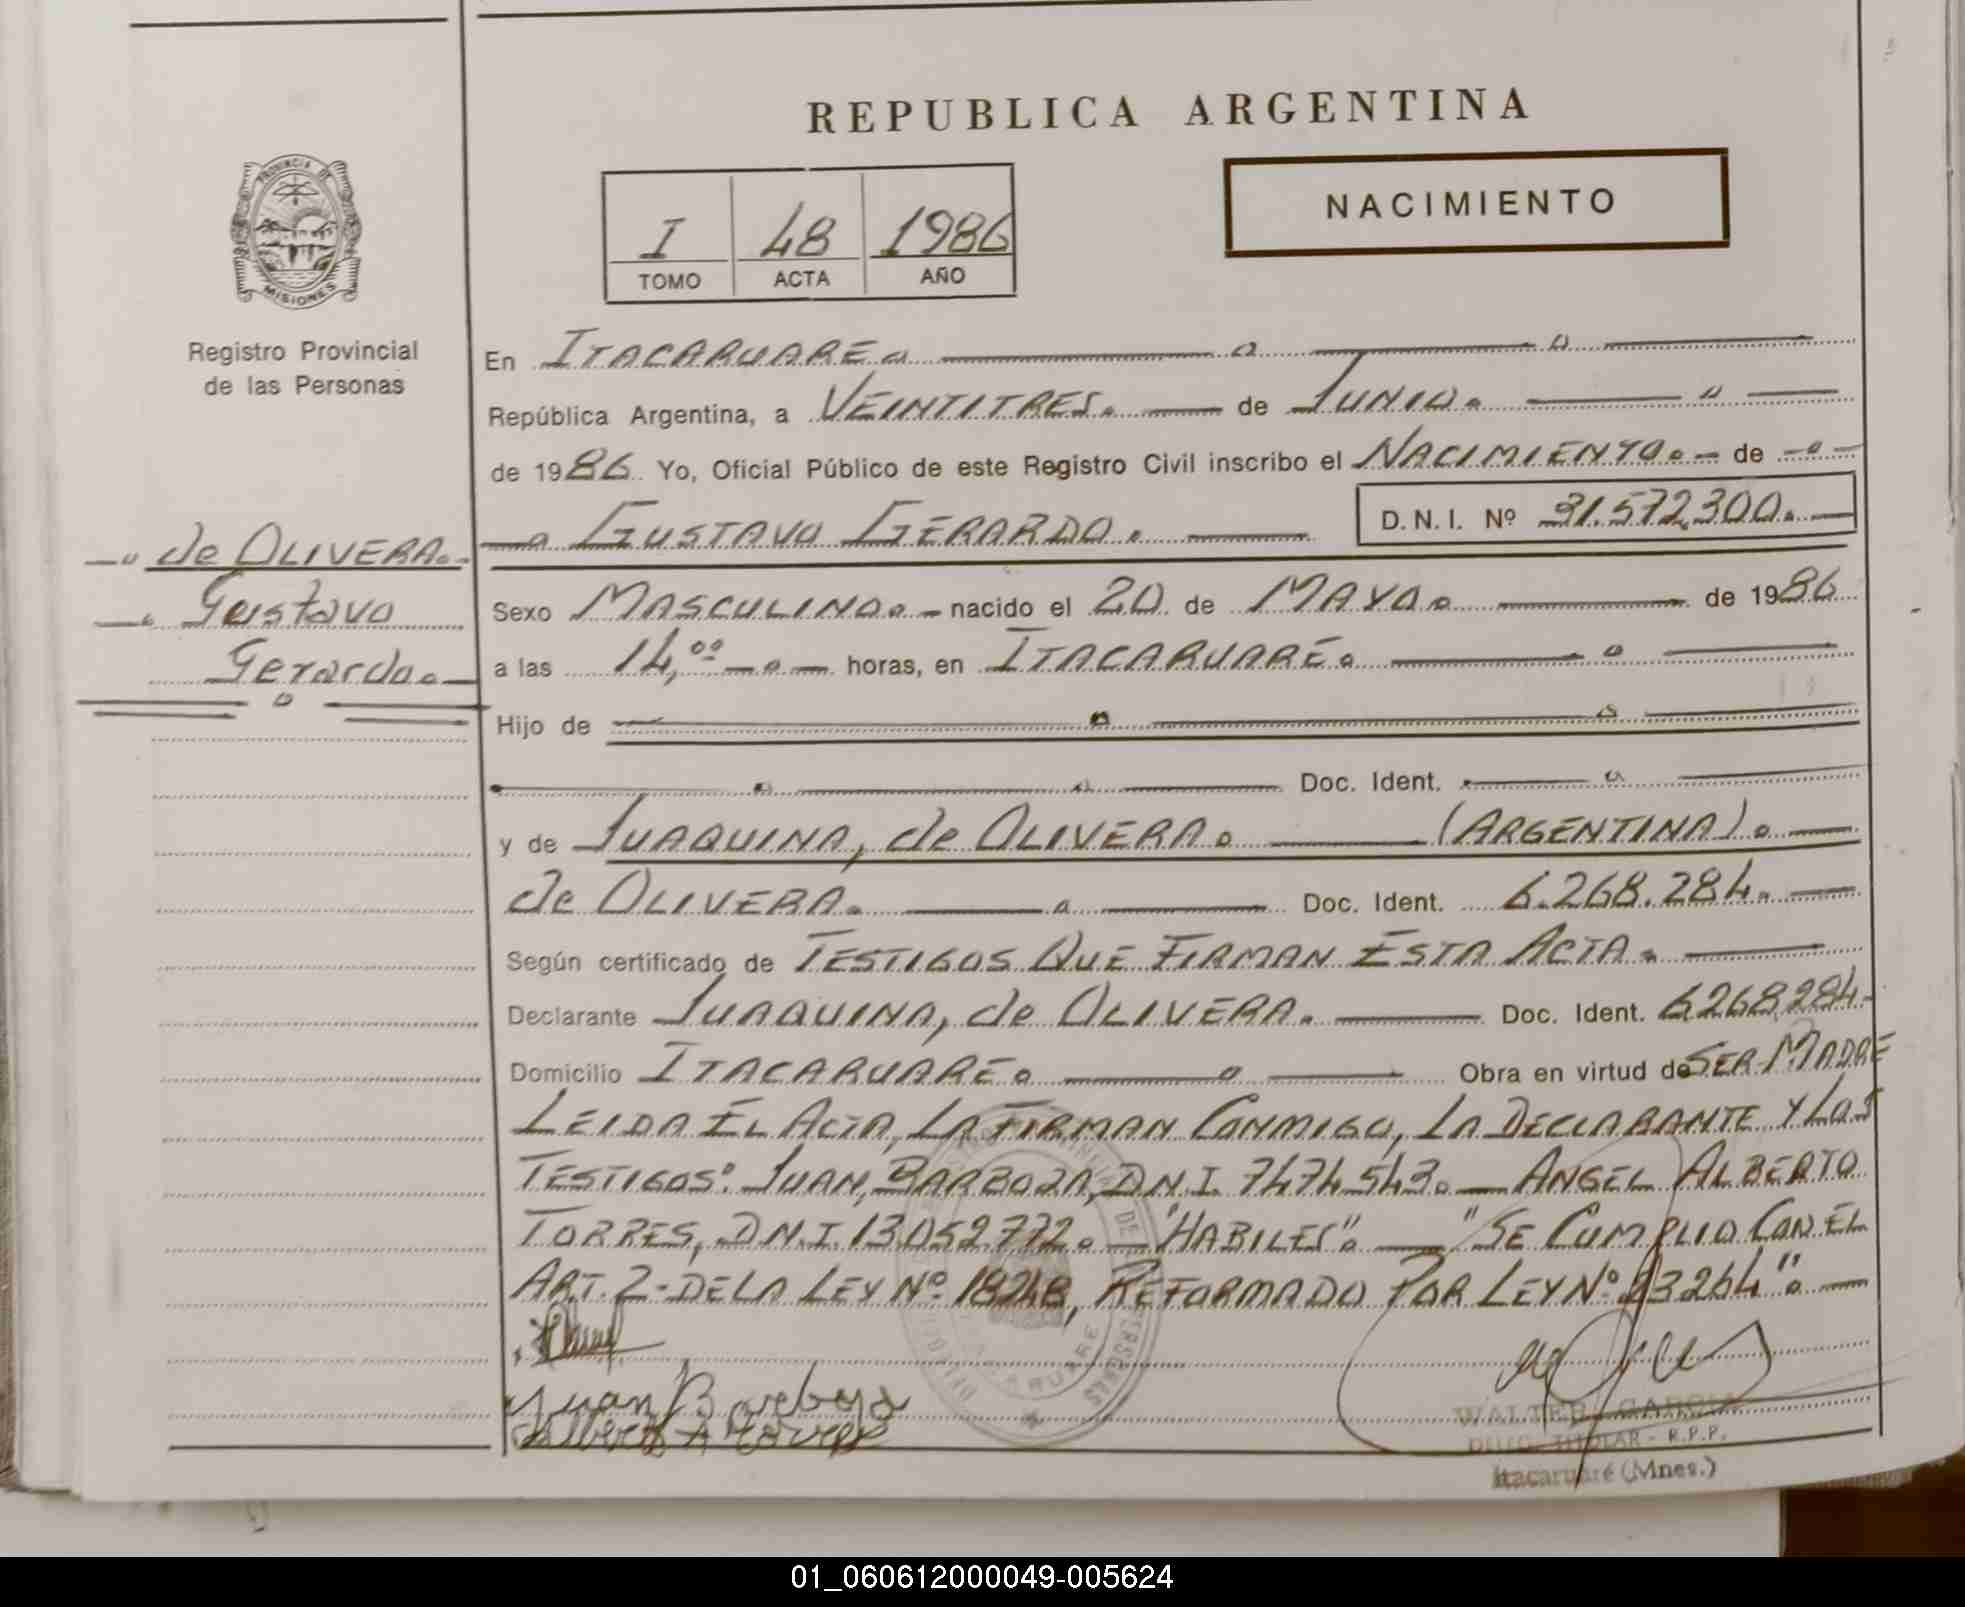 REPUBLICA ARGENTINA
NACIMIENTO
I 48 1986
TOMO ACTA AÑO
PROVINCIA DE
MISIONES
Registro Provincial
de las Personas
de OLIVERA.
Gustavo
Gerardo.
En ITACARUARE.
República Argentina, a VEINTITRES. de JUNIO.
de 1986 Yo, Oficial Público de este Registro Civil inscribo el NACIMIENTO. de
GUSTAVO GERARDO. D.N.I. Nº 31.572.300.
Sexo MASCULINO. nacido el 20 de MAYO. de 1986
a las 14,00 horas, en ITACARUARE.
Hijo de
Doc. Ident.
y de JUAQUINA, de OLIVERA. (ARGENTINA).
de OLIVERA. Doc. Ident. 6.268.284.
Según certificado de TESTIGOS QUE FIRMAN ESTA ACTA.
Declarante JUAQUINA, de OLIVERA. Doc. Ident. 6268284.
Domicilio ITACARUARE. Obra en virtud de SER MADRE
LEIDA EL ACTA, LA FIRMAN CONMIGO, LA DECLARANTE Y LOS
TESTIGOS: JUAN, BARBOZA, D.N.I. 7474543. ANGEL ALBERTO
TORRES, D.N.I. 13052772. "HABILES". "SE CUMPLIO CON EL
ART. 2- DE LA LEY Nº 18248, REFORMADO POR LEY Nº 23264".
Juan Barboza
WALTER GARCIA
DELEG. TITULAR - R.P.P.
Itacaruaré (Mnes.)
01_060612000049-005624